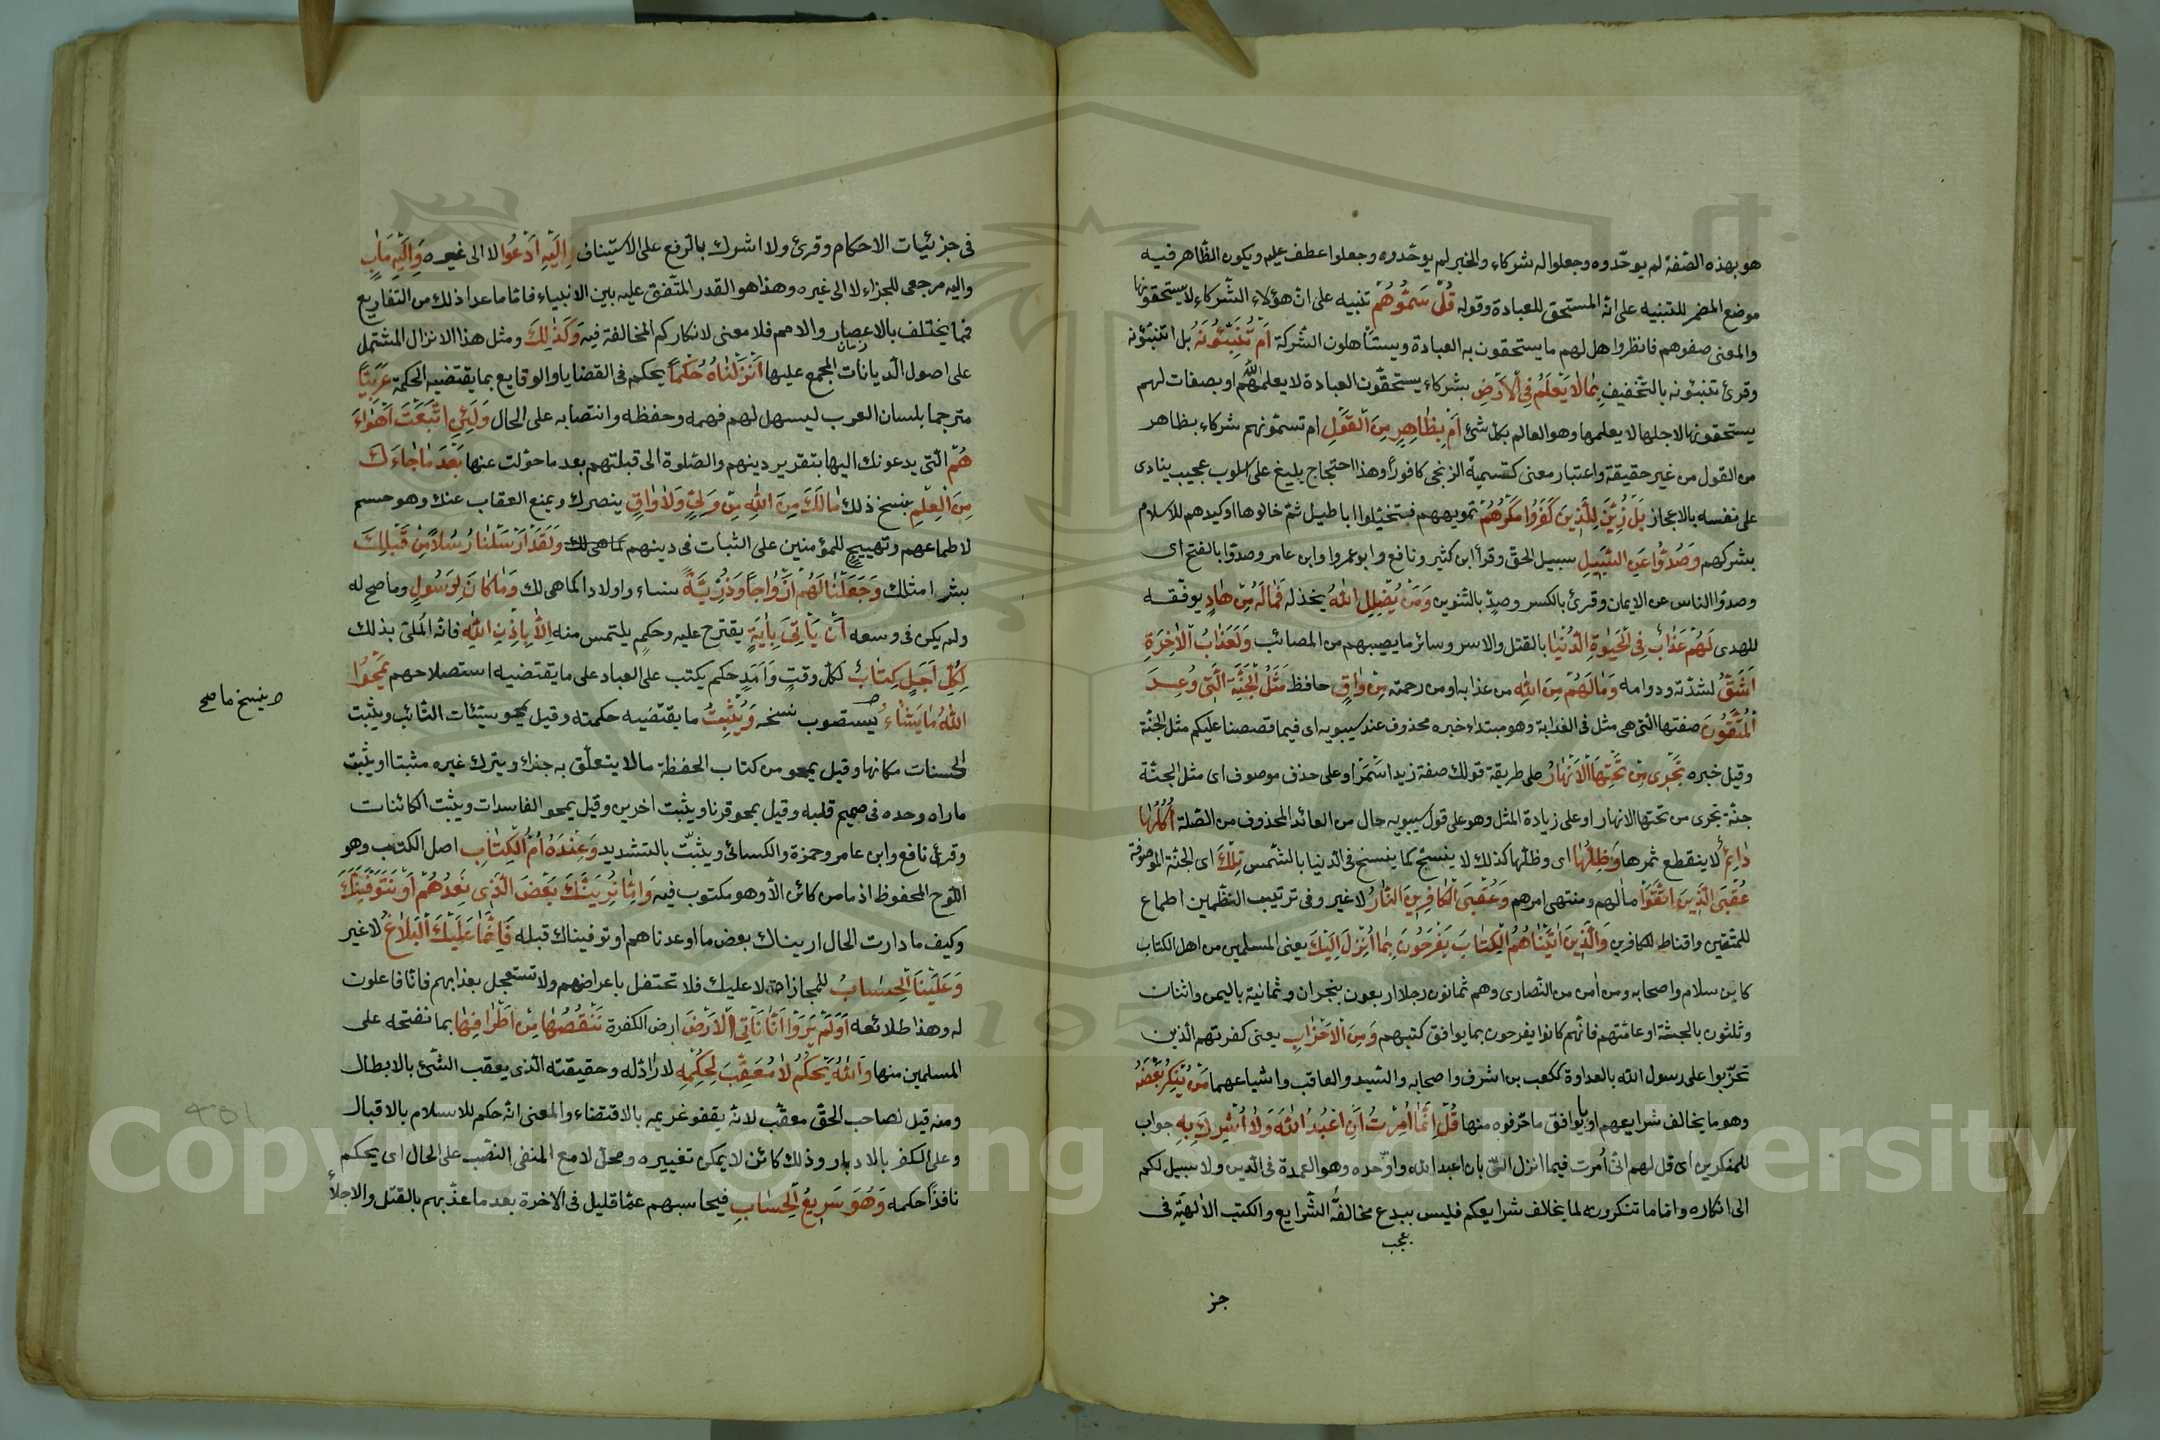 هو بهذه الصّفة لم يوحّدوه وجعلوا له شركاء والخبر لم يوحّدوه وجعلوا عطف عليه ويكون الظّاهر فيه
موضع المضمر للتنبيه على انّه المستحق للعبادة وقوله قُلْ سَمُّوهُمْ تنبيه على انّ هؤلاء الشّركاء لا يستحقونها
والمعنى صفوهم فانظروا هل لهم ما يستحقون به العبادة ويستأهلون الشركة اَمْ تُنَبِّئُونَهُ بل اتنبّئونه
وقرئ تنبئونه بالتّخفيف بِمَا لَا يَعْلَمُ فِى الْاَرْضِ بشركاء يستحقّون العبادة لا يعلمهم اللّه او بصفات لهم
يستحقونها لاجلها لا يعلمها وهو العالم بكلّ شئ اَمْ بِظَاهِرٍ مِنَ الْقَوْلِ ام تسمّونهم شركاء بظاهر
من القول من غير حقيقة واعتبار معنى كتسمية الزنجى كافوراً وهذا احتجاج بليغ على اسلوب عجيب ينادى
على نفسه بالاعجاز بَلْ زُيِّنَ لِلَّذِينَ كَفَرُوا مَكْرُهُمْ تمويههم فتخيّلوا اباطيل ثمّ خالوها او كيدهم للاسلام
بشركهم وَصَدُّوا عَنِ السَّبِيلِ سبيل الحقّ وقرأ ابن كثير ونافع وابو عمروا وابن عامر وصدّوا بالفتح اى
وصدّوا الناس عن الايمان وقرئ بالكسر وصدٍّ بالتّنوين وَمَنْ يُضْلِلِ اللّٰهُ يخذله فَمَا لَهُ مِنْ هَادٍ يوفّقه
للهدى لَهُمْ عَذَابٌ فِى الْحَيٰوةِ الدُّنْيَا بالقتل والاسر وسائر ما يصيبهم من المصائب وَلَعَذَابُ الْاٰخِرَةِ
اَشَقُّ لشدّته ودوامه وَمَا لَهُمْ مِنَ اللّٰهِ من عذابه او من رحمته مِنْ وَاقٍ حافظ مَثَلُ الْجَنَّةِ الَّتِى وُعِدَ
الْمُتَّقُونَ صفتها الّتى هى مثل فى الغرابة وهو مبتداء خبره محذوف عند سيبويه اى فيما قصصنا عليكم مثل الجنّة
وقيل خبره تَجْرِى مِنْ تَحْتِهَا الْاَنْهَارُ على طريقة قولك صفة زيد اسْمَرُ او على حذف موصوف اى مثل الجنّة
جنّة تجرى من تحتها الانهار او على زيادة المثل وهو على قول سيبويه حال من العائد المحذوف من الصّلة اُكُلُهَا
دَائِمٌ لا ينقطع ثمرها وَظِلُّهَا اى وظلّها كذلك لا ينسخ كما ينسخ فى الدّنيا بالشّمس تِلْكَ اى الجنّة الموصوفة
عُقْبَى الَّذِينَ اتَّقَوْا مآلهم ومنتهى امرهم وَعُقْبَى الْكَافِرِينَ النَّارُ لا غير وفى ترتيب النّظمين اطماع
للمتّقين واقناط للكافرين وَالَّذِينَ اٰتَيْنَاهُمُ الْكِتَابَ يَفْرَحُونَ بِمَا اُنْزِلَ اِلَيْكَ يعنى المسلمين من اهل الكتاب
كابن سلام واصحابه ومن آمن من النّصارى وهم ثمانون رجلا اربعون بنجران وثمانية باليمن واثنان
وثلثون بالحبشة او عامّتهم فانّهم كانوا يفرحون بما يوافق كتبهم وَمِنَ الْاَحْزَابِ يعنى كفرتهم الّذين
تحزّبوا على رسول اللّه بالعداوة ككعب بن اشرف واصحابه والسّيد والعاقب واشياعهما مَنْ يُنْكِرُ بَعْضَهُ
وهو ما يخالف شرايعهم او يوافق ما حرّفوه منها قُلْ اِنَّمَا اُمِرْتُ اَنْ اَعْبُدَ اللّٰهَ وَلَا اُشْرِكَ بِهِ جواب
للمنكرين اى قل لهم انّى اُمرت فيما انزل الىّ بان اعبد اللّه واوحّده وهو العمدة فى الدّين ولا سبيل لكم
الى انكاره وامّا ما تنكرونه لما يخالف شرايعكم فليس ببدع مخالفةُ الشّرايع والكتب الالٰهيّة فى
بعجب
جز
فى جزئيّات الاحكام وقرئ ولا اشرك بالرّفع على الاستيناف اِلَيْهِ اَدْعُوا لا الى غيره وَاِلَيْهِ مَاٰبِ
واليه مرجعى للجزاء لا الى غيره وهذا هو القدر المتّفق عليه بين الانبياء فامّا ما عدا ذلك من التفاريع
فمّا يختلف بالاعصار والامم فلا معنى لانكاركم المخالفة فيه وَكَذٰلِكَ ومثل هذا الانزال المشتمل
على اصول الدّيانات المجمع عليها اَنْزَلْنَاهُ حُكْمًا يحكم فى القضايا والوقايع بما يقتضيه الحكمة عَرَبِيًّا
مترجما بلسان العرب ليسهل لهم فهمه وحفظه وانتصابه على الحال وَلَئِنِ اتَّبَعْتَ اَهْوَاءَ
هُمْ الّتى يدعونك اليها بتقرير دينهم والصّلوة الى قبلتهم بعد ما حوّلت عنها بَعْدَ مَا جَاءَكَ
مِنَ الْعِلْمِ بنسخ ذلك مَا لَكَ مِنَ اللّٰهِ مِنْ وَلِىٍّ وَلَا وَاقٍ ينصرك ويمنع العقاب عنك وهو حسم
لاطماعهم وتهييج للمؤمنين على الثبات فى دينهم كما هى لك وَلَقَدْ اَرْسَلْنَا رُسُلًا مِنْ قَبْلِكَ
بشرا مثلك وَجَعَلْنَا لَهُمْ اَزْوَاجًا وَذُرِّيَّةً نساء واولادا كما هى لك وَمَا كَانَ لِرَسُولٍ وما صح له
ولم يكن فى وسعه اَنْ يَاْتِىَ بِاٰيَةٍ يقترح عليه وحكم يلتمس منه اِلَّا بِاِذْنِ اللّٰهِ فانّه الملئ بذلك
لِكُلِّ اَجَلٍ كِتَابٌ لكلّ وقتٍ وَاَمَدٍ حكم يكتب على العباد على ما يقتضيه استصلاحهم يَمْحُوا
اللّٰهُ مَا يَشَاءُ يستصوب نسخه وَيُثْبِتُ ما يقتضيه حكمته وقيل يمحو سيّئات التّائب ويثبت
الحسنات مكانها وقيل يمحو من كتاب الحفظة ما لا يتعلّق به جزاء ويترك غيره مثبتا او يثبت
ما رآه وحده فى صميم قلبه وقيل يمحو قرنا ويثبت آخرين وقيل يمحو الفاسدات ويثبت الكائنات
وقرئ نافع وابن عامر وحمزة والكسائى ويثبّت بالتشديد وَعِنْدَهُ اُمُّ الْكِتَابِ اصل الكتب وهو
اللّوح المحفوظ اذ ما من كائن الّا وهو مكتوب فيه وَاِمَّا نُرِيَنَّكَ بَعْضَ الَّذِى نَعِدُهُمْ اَوْ نَتَوَفَّيَنَّكَ
وكيف ما دارت الحال اريناك بعض ما اوعدناهم او توفيناك قبله فَاِنَّمَا عَلَيْكَ الْبَلَاغُ لا غير
وَعَلَيْنَا الْحِسَابُ للمجازاة لا عليك فلا تحتفل باعراضهم ولا تستعجل بعذابهم فانّا فاعلون
له وهذا طلائعه اَوَلَمْ يَرَوْا اَنَّا نَاْتِى الْاَرْضَ ارض الكفرة نَنْقُصُهَا مِنْ اَطْرَافِهَا بما نفتحه على
المسلمين منها وَاللّٰهُ يَحْكُمُ لَا مُعَقِّبَ لِحُكْمِهِ لا رادّ له وحقيقته الّذى يعقب الشّئ بالابطال
ومنه قيل لصاحب الحقّ معقّب لانّه يقفو غريمه بالاقتضاء والمعنى انّه حكم للاسلام بالاقبال
وعلى الكفر بالادبار وذلك كائن لا يمكن تغييره ومحلّ لا مع المنفى النّصب على الحال اى يحكم
نافذًا حكمه وَهُوَ سَرِيعُ الْحِسَابِ فيحاسبهم عمّا قليل فى الآخرة بعد ما عذّبهم بالقتل والاجلاء
ينسخ ما صح
Copyright © King Saud University
1957